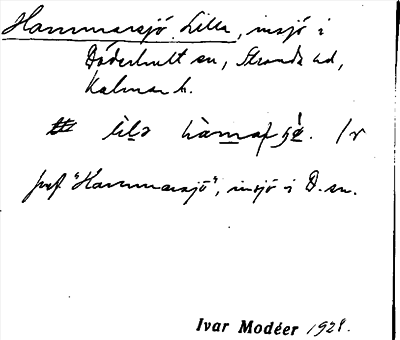 Hammarsjö Lilla, insjö i
Döderhult sn, Stranda hd,
Kalmar l.
jmf "Hammarsjö", insjö i D. sn.
Ivar Modéer 1928.